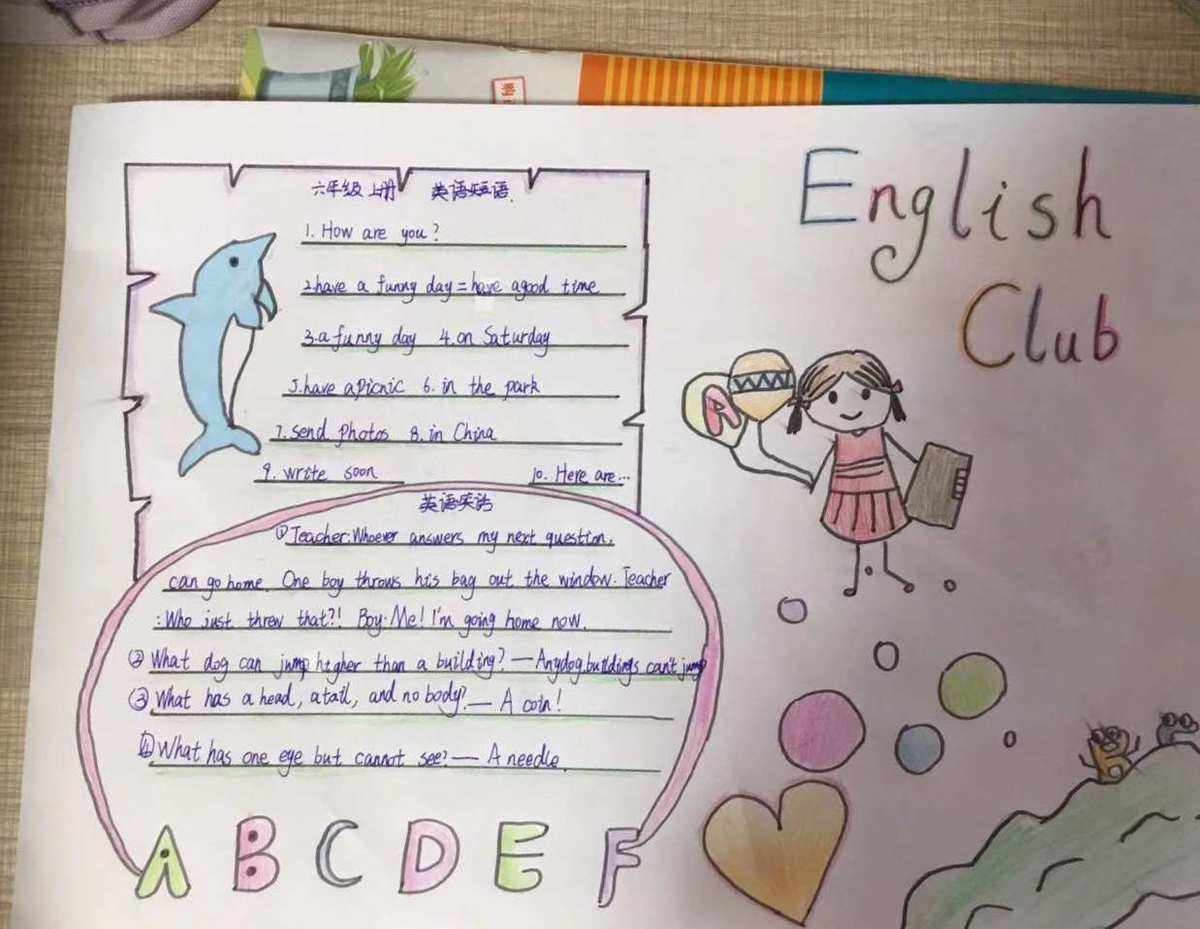 六年级上册 英语短语.
1. How are you?
2.have a funny day=have a good time
3.a funny day 4.on Saturday
5.have a picnic 6. in the park
7.send photos 8.in China
9. write soon 10. Here are...
英语笑话
①Teacher:Whoever answers my next question,
can go home. One boy throws his bag out the window. Teacher
:Who just threw that?! Boy:Me! I'm going home now.
② What dog can jump higher than a building?—Any dog,buildings can't jump
③ What has a head, a tail, and no body?— A coin!
④ What has one eye but cannot see?— A needle.
A B C D E F
English
Club